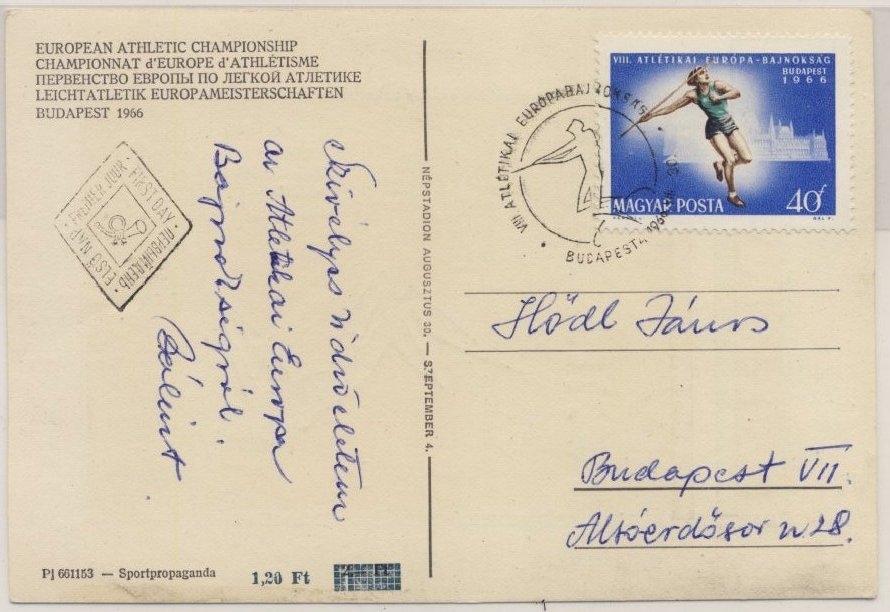 EUROPEAN ATHLETIC CHAMPIONSHIP
CHAMPIONNAT d'EUROPE d'ATHLÉTISME
ПЕРВЕНСТВО ЕВРОПЫ ПО ЛЕГКОЙ АТЛЕТИКЕ
LEICHTATLETIK EUROPAMEISTERSCHAFTEN
BUDAPEST 1966
PREMIER JOUR · FIRST DAY · ПЕРВЫЙ ДЕНЬ · ELSŐ NAP
Szívélyes üdvözletem
az Atletikai Europa
Bajnokságról.
Bálint
Pj 661153 — Sportpropaganda
1,20 Ft
NÉPSTADION AUGUSZTUS 30. — SZEPTEMBER 4.
VIII. ATLÉTIKAI EURÓPA-BAJNOKSÁG
BUDAPEST
1966
MAGYAR POSTA
40f
VIII ATLÉTIKAI EURÓPABAJNOKSÁG
BUDAPEST 4 1966
Hödl János
Budapest VII.
Alsóerdősor u 28.